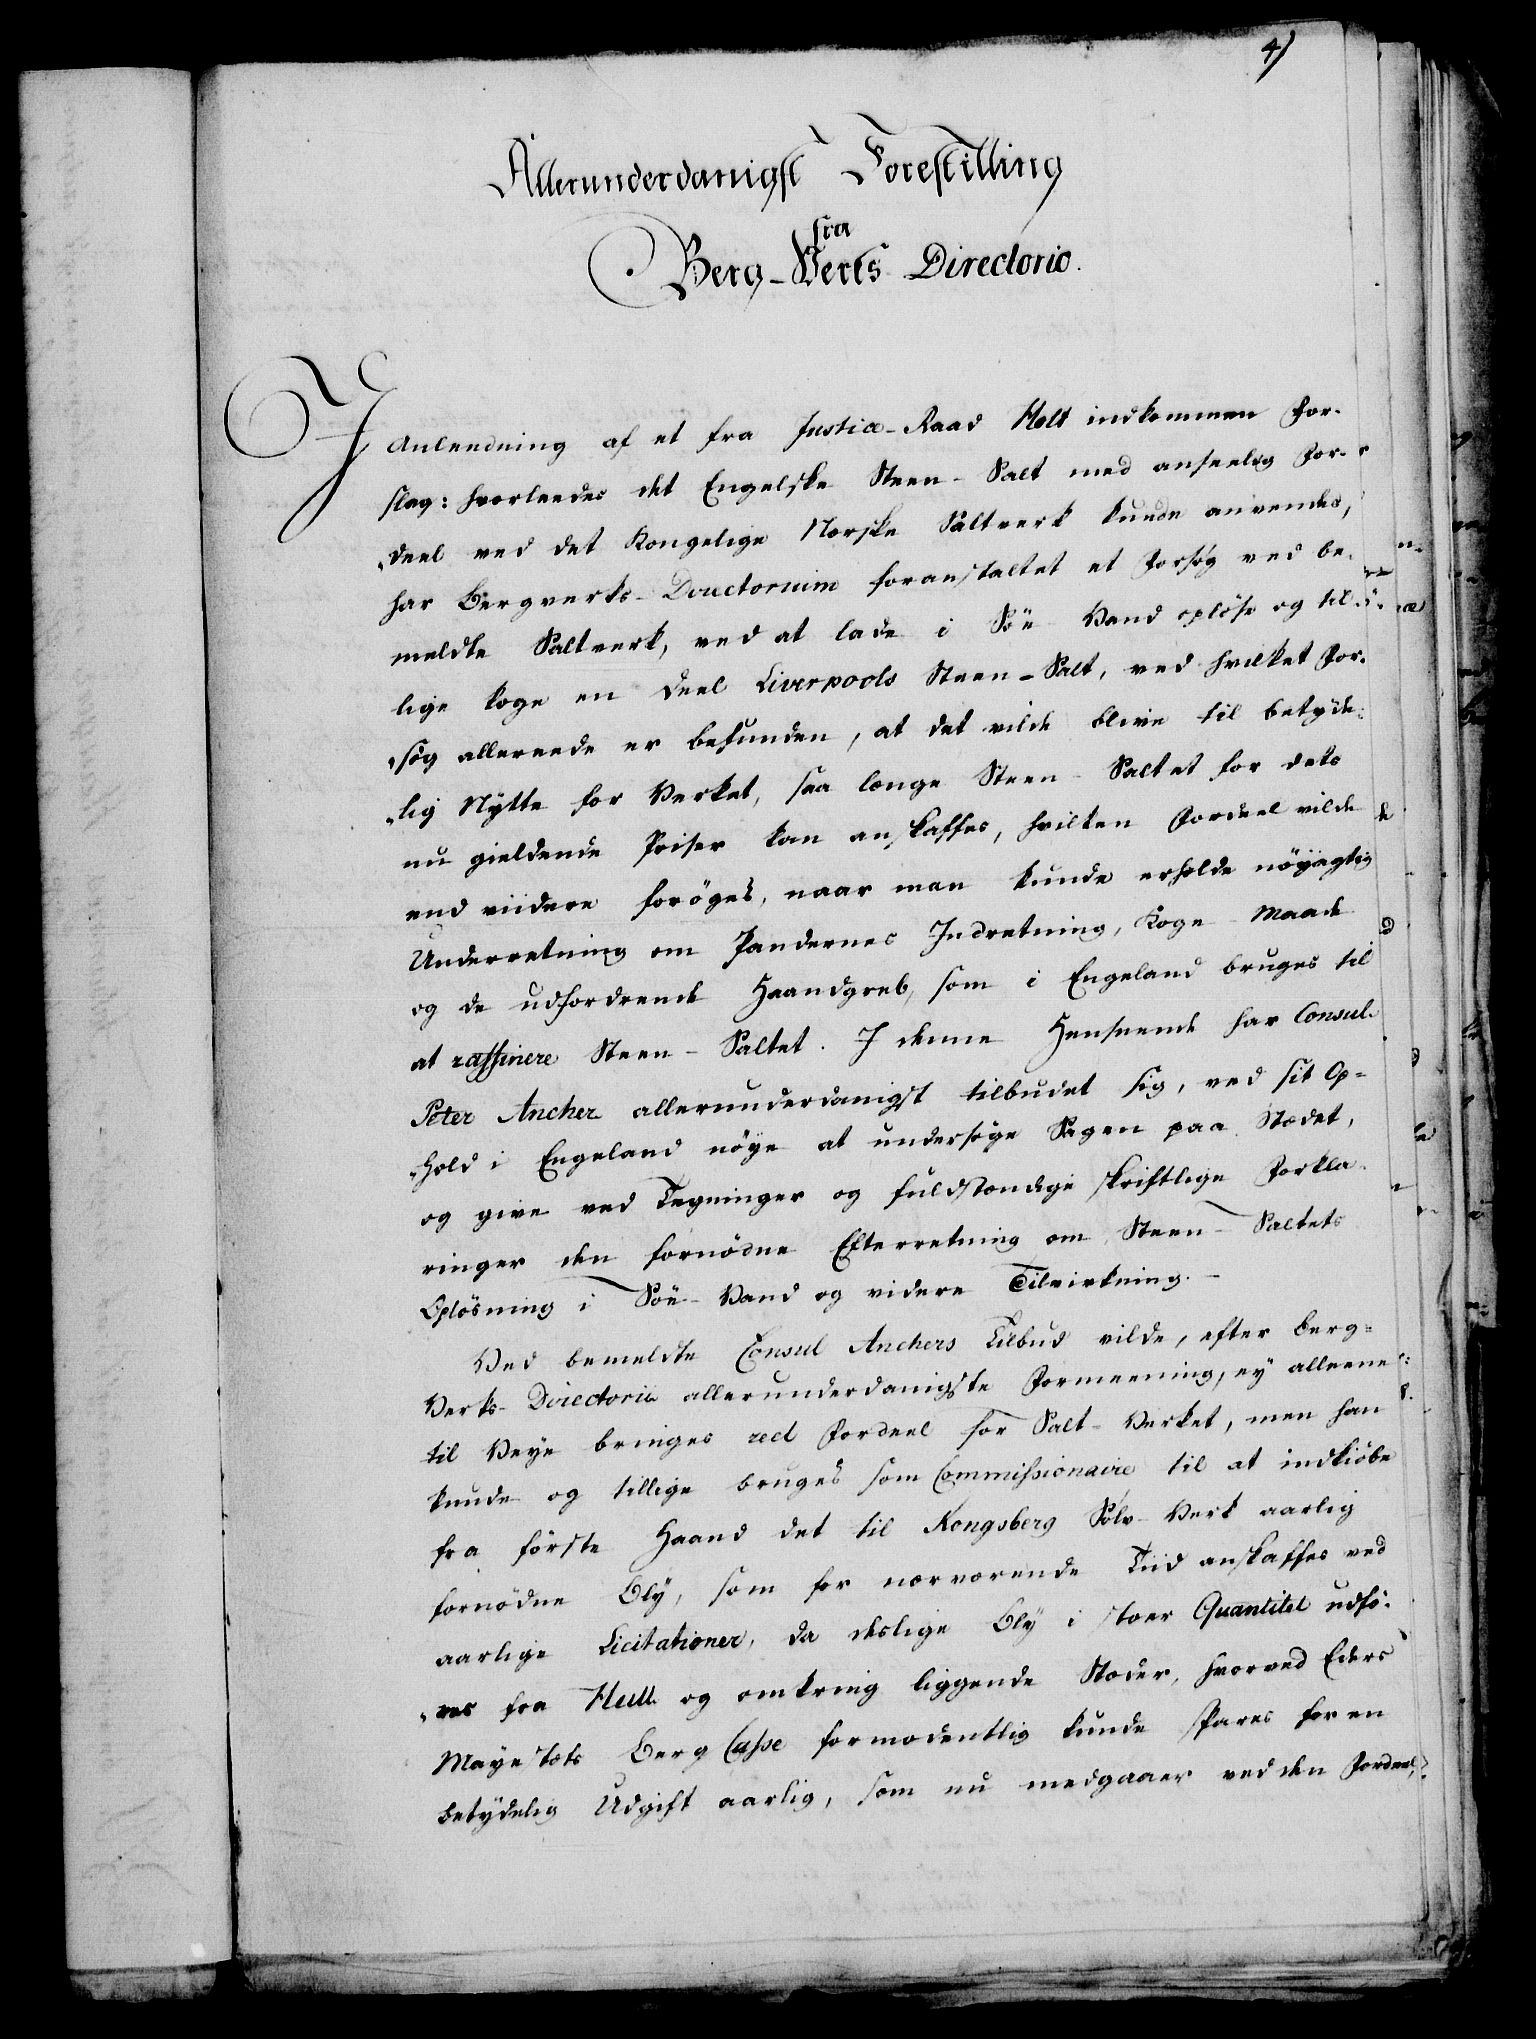 4)
Allerunderdanigst Forestilling
fra
Berg-Verks Directorio.
I Anledning af et fra Justice-Raad Holt indkommen For-
slag: hvorleedes det Engelske Steen-Salt med anseelig For-
„deel ved det Kongelige Norske Saltverk kunde anvendes,
har Bergverks-Directorium foranstaltet et Forsøg ved be-
meldte Saltverk, ved at lade i Söe Vand oplöse og til-
lige koge en Deel Liverpools Steen-Salt, ved hvilket For-
„søg allereede er befunden, at det vilde blive til betyde-
„lig Nytte for Verket, saa længe Steen-Saltet for dets
nu gieldende Priser kan anskaffes, hvilken Fordeel vilde
end viidere forøges, naar man kunde erholde nöyagtig
Underretning om Pandernes Indretning, Koge-Maade
og de udfordrende Haandgreb, som i Engeland bruges til
at raffinere Steen-Saltet. I denne Henseende har Consul
Peter Ancher allerunderdanigst tilbudet sig, ved sit Op-
„hold i Engeland nöye at undersøge Sagen paa Stædet,
og give ved Tegninger og fuldstændige skriftlige Forkla-
ringer den fornödne Efterretning om Steen-Saltets
Oplösning i Söe-Vand og videre Tilvirkning.-
Ved bemeldte Consul Anchers Tilbud vilde, efter Berg-
Verks-Directorii allerunderdanigste Formeening, ey alleene
til Veye bringes reel Fordeel for Salt-Verket, men han
kunde og tillige bruges som Commissionaire til at indkiöbe
fra förste Haand det til Kongsberg Sölv-Verk aarlig
fornödne Bly, som for nærværende Tiid anskaffes ved
aarlige Licitationer, da deslige Bly i stoer Quantitet udfö-
„res fra Hull og omkring liggende Stæder, hvorved Eders
Mayestæts Berg Casse formodentlig kunde spares for en
betydelig Udgift aarlig, som nu medgaaer ved den Fordeel,